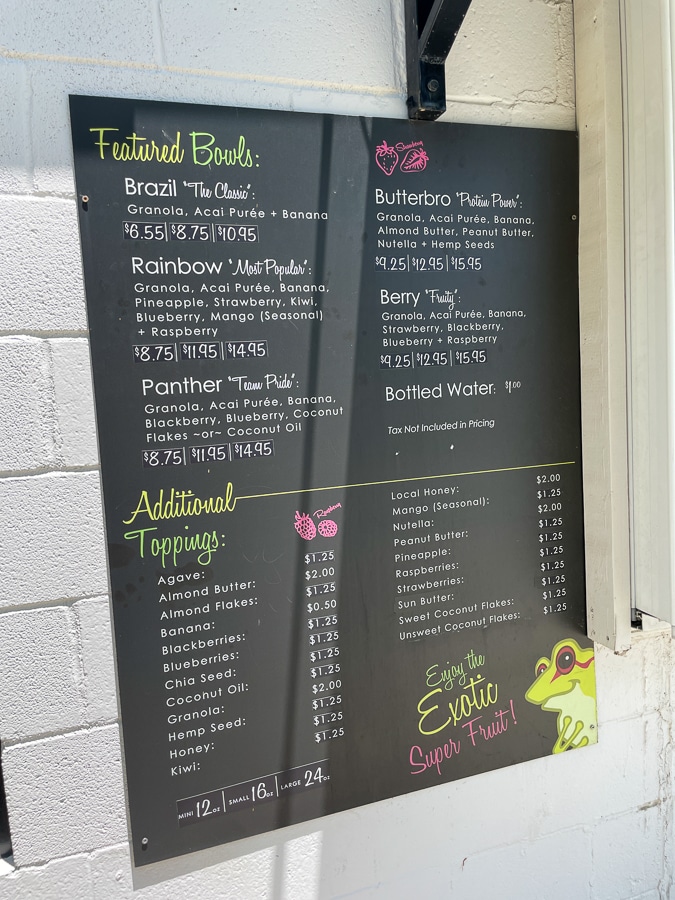 Featured Bowls:
Brazil "The Classic":
Granola, Acai Purée + Banana
$6.55 | $8.75 | $10.95
Rainbow "Most Popular":
Granola, Acai Purée, Banana,
Pineapple, Strawberry, Kiwi,
Blueberry, Mango (Seasonal)
+ Raspberry
$8.75 | $11.95 | $14.95
Panther "Team Pride":
Granola, Acai Purée, Banana,
Blackberry, Blueberry, Coconut
Flakes ~or~ Coconut Oil
$8.75 | $11.95 | $14.95
Strawberry
Butterbro "Protein Power":
Granola, Acai Purée, Banana,
Almond Butter, Peanut Butter,
Nutella + Hemp Seeds
$9.25 | $12.95 | $15.95
Berry "Fruity":
Granola, Acai Purée, Banana,
Strawberry, Blackberry,
Blueberry + Raspberry
$9.25 | $12.95 | $15.95
Bottled Water: $1.00
Tax Not Included in Pricing
Additional
Toppings:
Raspberry
Agave: $1.25
Almond Butter: $2.00
Almond Flakes: $1.25
Banana: $0.50
Blackberries: $1.25
Blueberries: $1.25
Chia Seed: $1.25
Coconut Oil: $1.25
Granola: $2.00
Hemp Seed: $1.25
Honey: $1.25
Kiwi: $1.25
MINI 12oz | SMALL 16oz | LARGE 24oz
Local Honey: $2.00
Mango (Seasonal): $1.25
Nutella: $2.00
Peanut Butter: $1.25
Pineapple: $1.25
Raspberries: $1.25
Strawberries: $1.25
Sun Butter: $1.25
Sweet Coconut Flakes: $1.25
Unsweet Coconut Flakes: $1.25
Enjoy the
Exotic
Super Fruit!